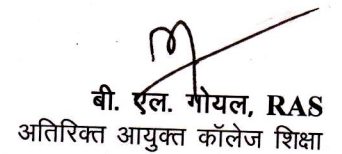 बी. एल. गोयल, RAS
अतिरिक्त आयुक्त कॉलेज शिक्षा